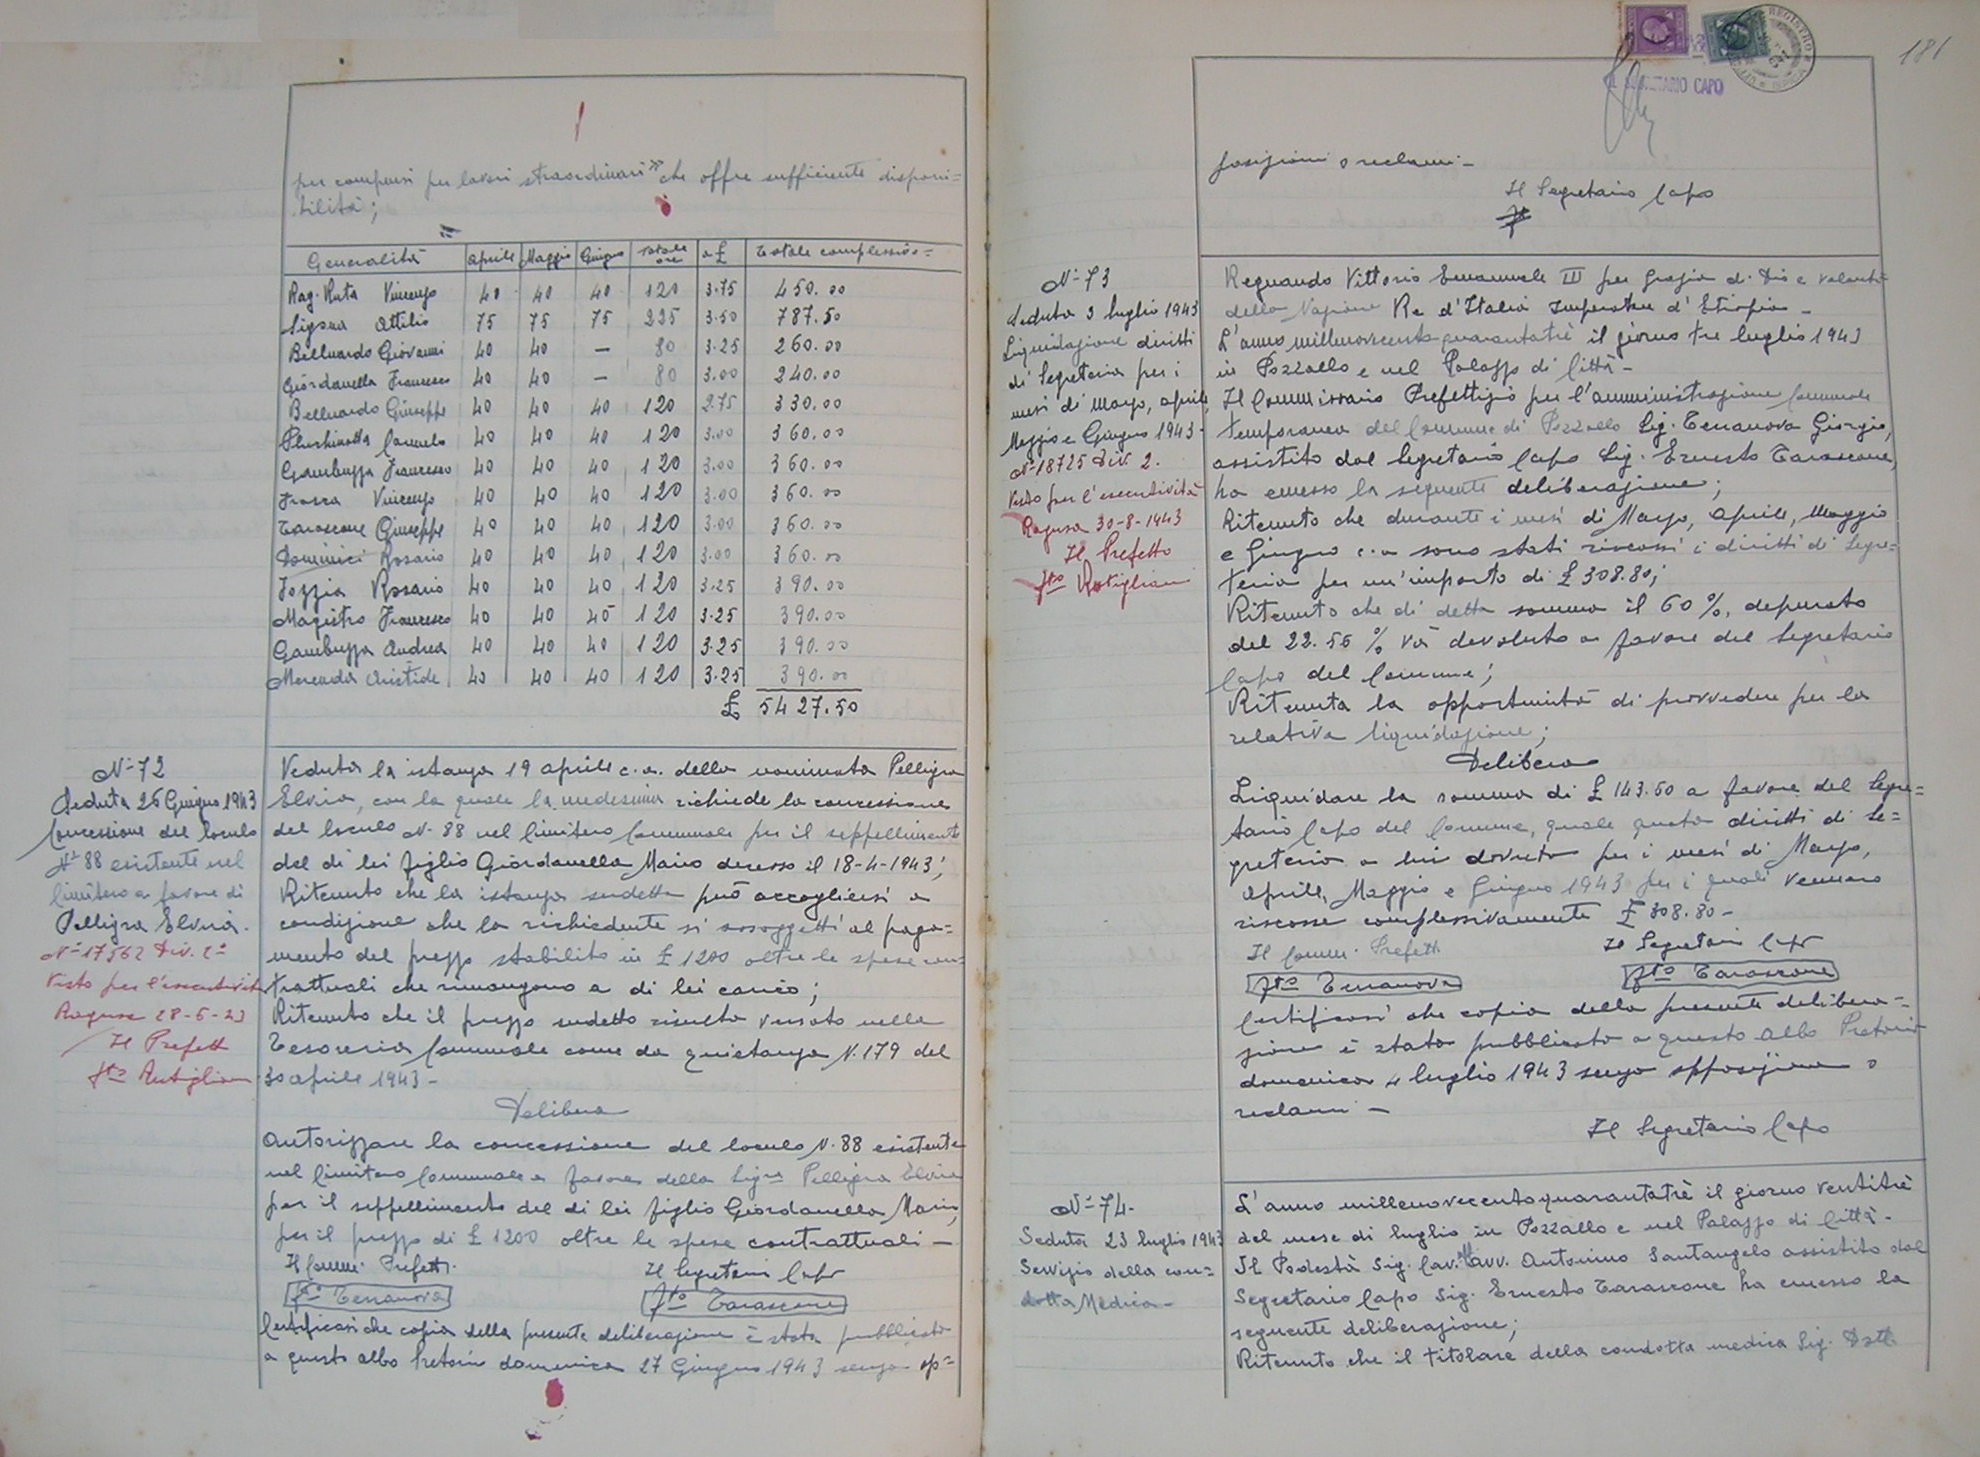 per compensi per lavori straordinari" che offre sufficiente disponi=
bilità;
Generalità aprile Maggio Giugno totale ore a £ Totale complessivo=
Rag. Ruta Vincenzo 40 40 40 120 3.75 450.00
Attilio 75 75 75 225 3.50 787.50
Belluardo Giovanni 40 40 — 80 3.25 260.00
Giordanella Francesco 40 40 — 80 3.00 240.00
Belluardo Giuseppe 40 40 40 120 2.75 330.00
Carmelo 40 40 40 120 3.00 360.00
Gambuzza Francesco 40 40 40 120 3.00 360.00
Frasca Vincenzo 40 40 40 120 3.00 360.00
Tarascone Giuseppe 40 40 40 120 3.00 360.00
Dominici Rosario 40 40 40 120 3.00 360.00
Iozzia Rosario 40 40 40 120 3.25 390.00
Magistro Francesco 40 40 40 120 3.25 390.00
Gambuzza Andrea 40 40 40 120 3.25 390.00
Aristide 40 40 40 120 3.25 390.00
£ 5427.50
N° 72
Seduta 26 Giugno 1943
Concessione del loculo
N° 88 esistente nel
Cimitero a favore di
Pelligra Elvira.
N° 17562 Div. 2ª
Visto per l'esecutività
Ragusa 28-6-43
Il Prefetto
fto
Veduta la istanza 19 aprile c.a. della nominata Pelligra
Elvira, con la quale la medesima richiede la concessione
del loculo N. 88 nel Cimitero Comunale per il seppellimento
del di lei figlio Giordanella Mario decesso il 18-4-1943;
Ritenuto che la istanza sudetta può accogliersi a
condizione che la richiedente si assoggetti al paga=
mento del prezzo stabilito in £ 1200 oltre le spese con=
trattuali che rimangono a di lei carico;
Ritenuto che il prezzo sudetto risulta versato nella
Tesoreria Comunale come da quietanza N. 179 del
30 aprile 1943 -
Delibera
Autorizzare la concessione del loculo N. 88 esistente
nel Cimitero Comunale a favore della Sigra Pelligra Elvira
per il seppellimento del di lei figlio Giordanella Mario,
per il prezzo di £ 1200 oltre le spese contrattuali —
Il Comm. Prefett. Il Segretario Capo
fto Terranova fto Tarascone
Certificasi che copia della presente deliberazione è stata pubblicata
a questo albo Pretorio domenica 27 Giugno 1943 senza op=
181
IL SEGRETARIO CAPO
posizioni o reclami -
Il Segretario Capo
N° 73
Seduta 3 luglio 1943
Liquidazione diritti
di Segreteria per i
mesi di Marzo, aprile,
Maggio e Giugno 1943 -
N° 18725 Div. 2.
Visto per l'esecutività
Ragusa 30-8-1943
Il Prefetto
fto
Regnando Vittorio Emanuele III per grazia di Dio e volontà
della Nazione Re d'Italia Imperatore d'Etiopia -
L'anno millenovecentoquarantatrè il giorno tre luglio 1943
in Pozzallo e nel Palazzo di Città -
Il Commissario Prefettizio per l'amministrazione Comunale
temporanea del Comune di Pozzallo Sig. Terranova Giorgio,
assistito dal Segretario Capo Sig. Ernesto Tarascone,
ha emesso la seguente deliberazione;
Ritenuto che durante i mesi di Marzo, aprile, Maggio
e Giugno c.a sono stati riscossi i diritti di Segre=
teria per un'importo di £ 308.80;
Ritenuto che di detta somma il 60%, depurato
del 22.56 % và devoluto a favore del Segretario
Capo del Comune;
Ritenuta la opportunità di provvedere per la
relativa liquidazione;
Delibera
Liquidare la somma di £ 143.50 a favore del Segre=
tario Capo del Comune, quale quota diritti di Se=
greteria a lui dovuta per i mesi di Marzo,
aprile, Maggio e Giugno 1943 per i quali vennero
riscosse complessivamente £ 308.80 -
Il Comm. Prefett. Il Segretario Capo
fto Terranova fto Tarascone
Certificasi che copia della presente delibera=
zione è stata pubblicata a questo albo Pretorio
domenica 4 luglio 1943 senza opposizione o
reclami -
Il Segretario Capo
N° 74.
Seduta 23 luglio 1943
Servizio della con=
dotta Medica -
L'anno millenovecentoquarantatrè il giorno ventitrè
del mese di luglio in Pozzallo e nel Palazzo di Città -
Il Podestà Sig. Cav. Uff. avv. Antonino Santangelo assistito dal
Segretario Capo Sig. Ernesto Tarascone ha emesso la
seguente deliberazione;
Ritenuto che il titolare della condotta medica Sig. Dott.